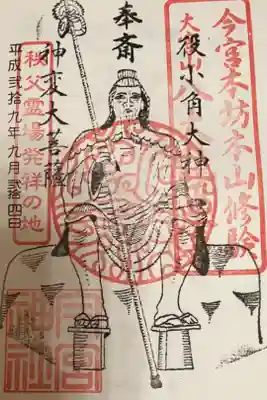 今宮本坊本山修験
役小角大神
奉斎
神変大菩薩
秩父霊場発祥の地
平成弐拾九年九月弐拾四日
今宮神社